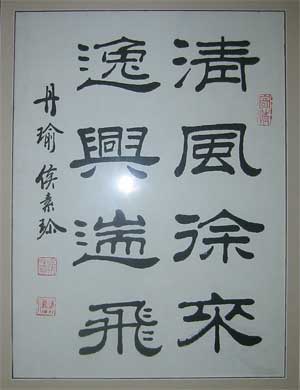 清風徐來
逸興遄飛
丹瑜侯素珍